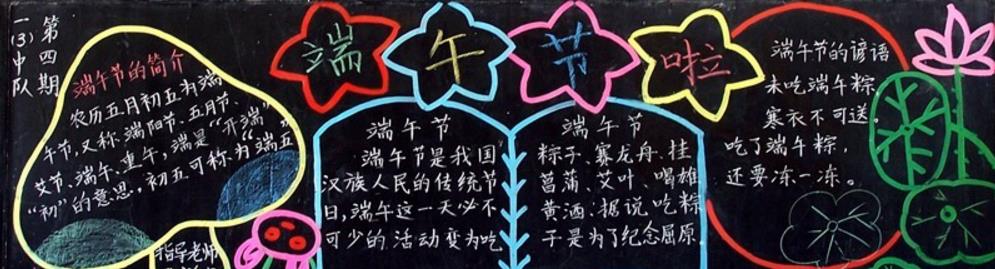 第四期
一(3)中队
端午节啦
端午节的简介
农历五月初五为端
午节,又称端阳节、五月节、
艾节、端午、重午,端是“开端”
“初”的意思。初五可称为端五
指导老师
端午节
端午节是我国
汉族人民的传统节
日,端午这一天必不
可少的活动变为吃
端午节
粽子、赛龙舟、挂
菖蒲、艾叶、喝雄
黄酒.据说吃粽
子是为了纪念屈原.
端午节的谚语
未吃端午粽.
寒衣不可送。
吃了端午粽,
还要冻一冻。